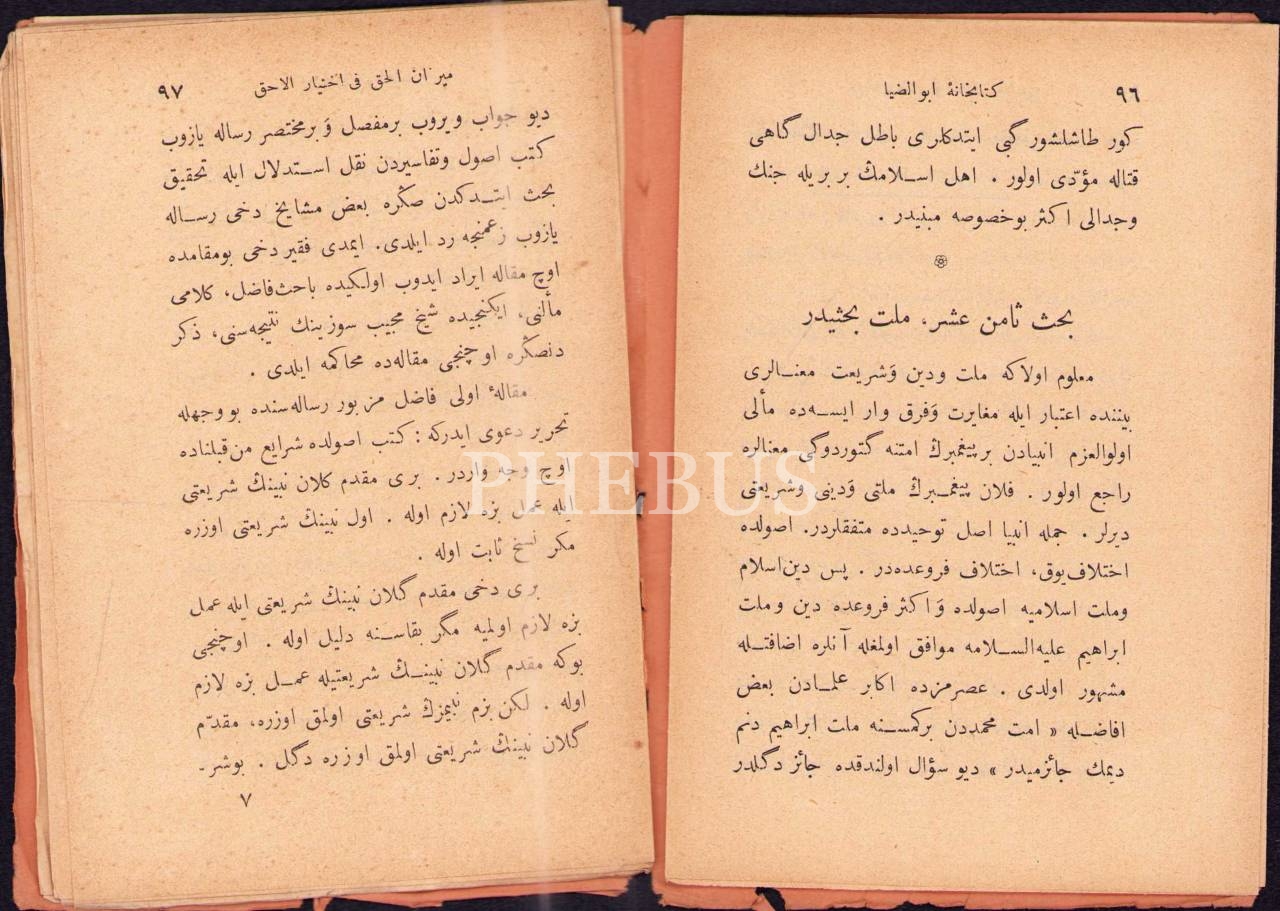 ٩٦
كتابخانهٔ ابوالضيا
كور طاشلشور گبى ايتدكلرى باطل جدال گاهى
قتاله مؤدّى اولور . اهل اسلامك بر بريله جنك
وجدالى اكثر بوخصوصه مبنيدر .
بحث ثامن عشر، ملت بحثيدر
معلوم اولاكه ملت ودين وَشريعت معنالرى
بيننده اعتبار ايله مغايرت وَفرق وار ايسه‌ده مألى
اولوالعزم انبيادن بر پيغمبرڭ امتنه گتوردوگى معنالره
راجع اولور . فلان پيغمبرڭ ملتى وَدينى وشريعتى
ديرلر . جمله انبيا اصل توحيدده متفقلردر. اصولده
اختلاف يوق، اختلاف فروعده‌در . پس دين اسلام
وملت اسلاميه اصولده وَاكثر فروعده دين وملت
ابراهيم عليه‌السلامه موافق اولمغله آنلره اضافتله
مشهور اولدى . عصرمزده اكابر علمادن بعض
افاضله « امت محمددن بركمسنه ملت ابراهيم دنم
ديمك جائزميدر » ديو سؤال اولندقده جائز دگلدر
ميزان الحق فى اختيار الاحق
٩٧
ديو جواب ويروب برمفصل وَبرمختصر رساله يازوب
كتب اصول وتفاسيردن نقل استدلال ايله تحقيق
بحث ايتدكدن صڭره بعض مشايخ دخى رساله
يازوب زعمنجه رد ايلدى. ايمدى فقير دخى بومقامده
اوچ مقاله ايراد ايدوب اولكيده باحث فاضل، كلامى
مألنى، ايكنجيده شيخ مجيب سوزينك نتيجه‌سنى، ذكر
دنصڭره اوچنجى مقاله‌ده محاكمه ايلدى .
مقالهٔ اولى فاضل مزبور رساله‌سنده بو وجهله
تحرير دعوى ايدركه : كتب اصولده شرايع من قبلناده
اوچ وجه واردر . برى مقدم كلان نبينك شريعتى
ايله عمل بزه لازم اوله . اول نبينك شريعتى اوزره
مكر نسخ ثابت اوله .
برى دخى مقدم گلان نبينك شريعتى ايله عمل
بزه لازم اولميه مگر بقاسنه دليل اوله . اوچنجى
بوكه مقدم گلان نبينڭ شريعتيله عمل بزه لازم
اوله . لكن بزم نبيمزك شريعتى اولمق اوزره، مقدّم
گلان نبينڭ شريعتى اولمق اوزره دگل . بوشر-
٧
PHEBUS